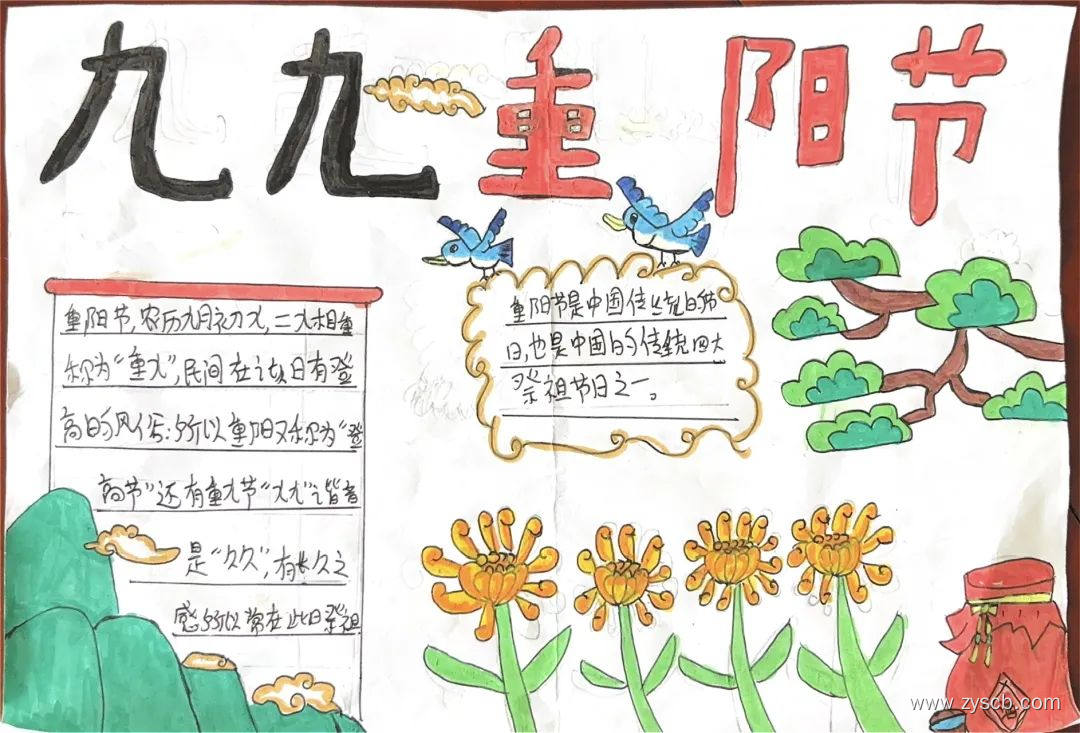 九九重阳节
重阳节,农历九月初九,二九相重
称为“重九”,民间在该日有登
高的风俗:所以重阳又称为“登
高节”还有重九节“九九”谐音
是“久久”,有长久之
感所以常在此日祭祖
重阳节是中国传统的节
日,也是中国的传统四大
祭祖节日之一。
酒
www.zyscb.com